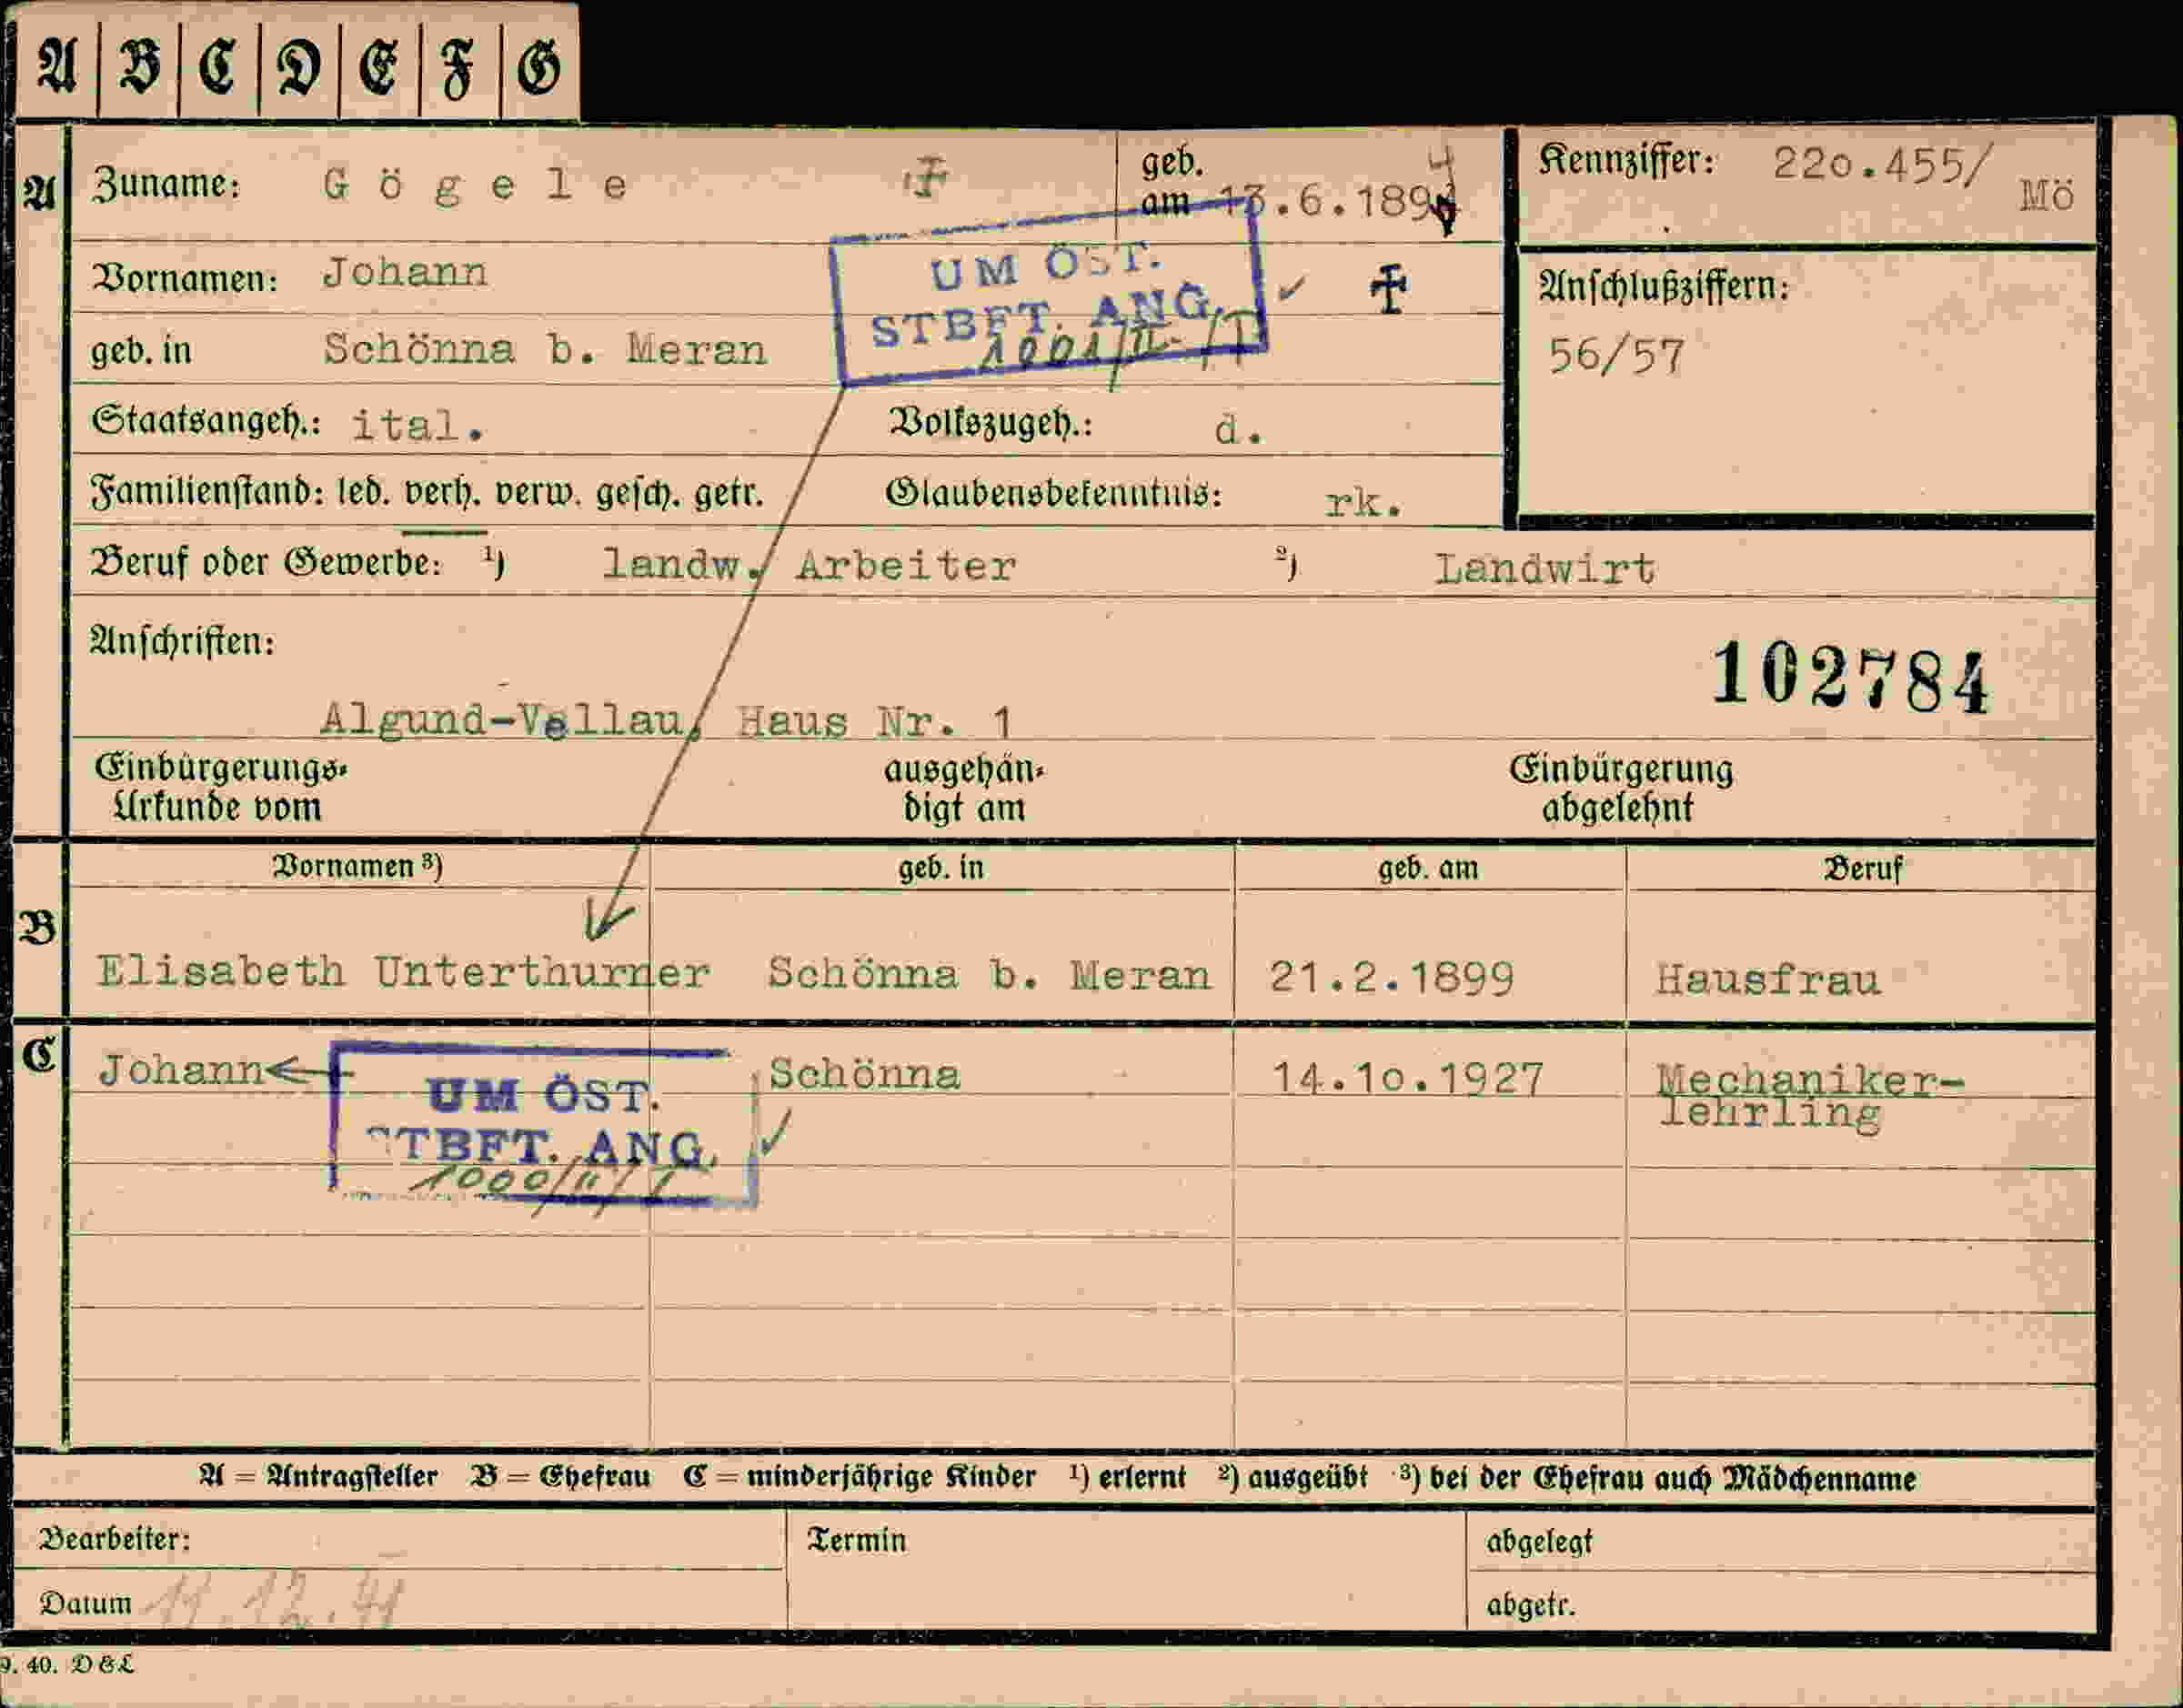 A B C D E F G
A Zuname: Gögele geb. am 13.6.1894 4 Kennziffer: 220.455/ Mö
Vornamen: Johann
UM ÖST.
STBFT. ANG.
1001/II-/T
Anschlußziffern:
56/57
geb. in Schönna b. Meran
Staatsangeh.: ital. Volkszugeh.: d.
Familienstand: led. verh. verw. gesch. getr. Glaubensbekenntnis: rk.
Beruf oder Gewerbe: ¹) landw. Arbeiter ²) Landwirt
Anschriften:
102784
Algund-Vellau, Haus Nr. 1
Einbürgerungs- ausgehän- Einbürgerung
Urkunde vom digt am abgelehnt
Vornamen ³) geb. in geb. am Beruf
B Elisabeth Unterthurner Schönna b. Meran 21.2.1899 Hausfrau
C Johann Schönna 14.10.1927 Mechaniker-
lehrling
UM ÖST.
STBFT. ANG.
1000/II/T
A = Antragsteller B = Ehefrau C = minderjährige Kinder ¹) erlernt ²) ausgeübt ³) bei der Ehefrau auch Mädchenname
Bearbeiter: Termin abgelegt
Datum 11.12.41 abgetr.
9. 40. D & L